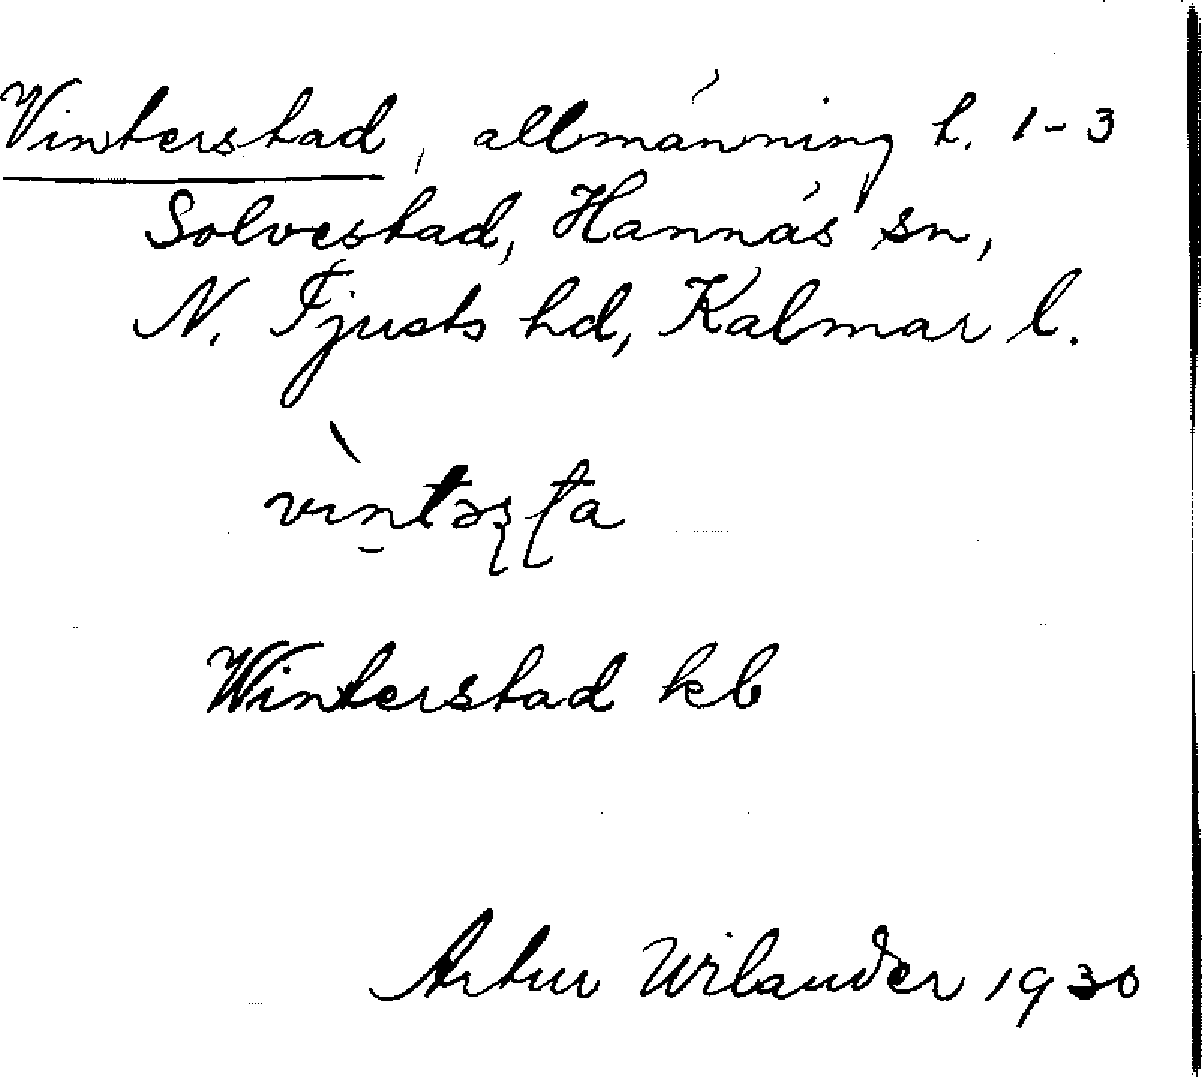 Vinterstad, allmänning t. 1-3
Solvestad, Hannäs sn,
N. Tjusts hd, Kalmar l.
vìn̠təʂʈa
Winterstad kb
Artur Wilander 1930